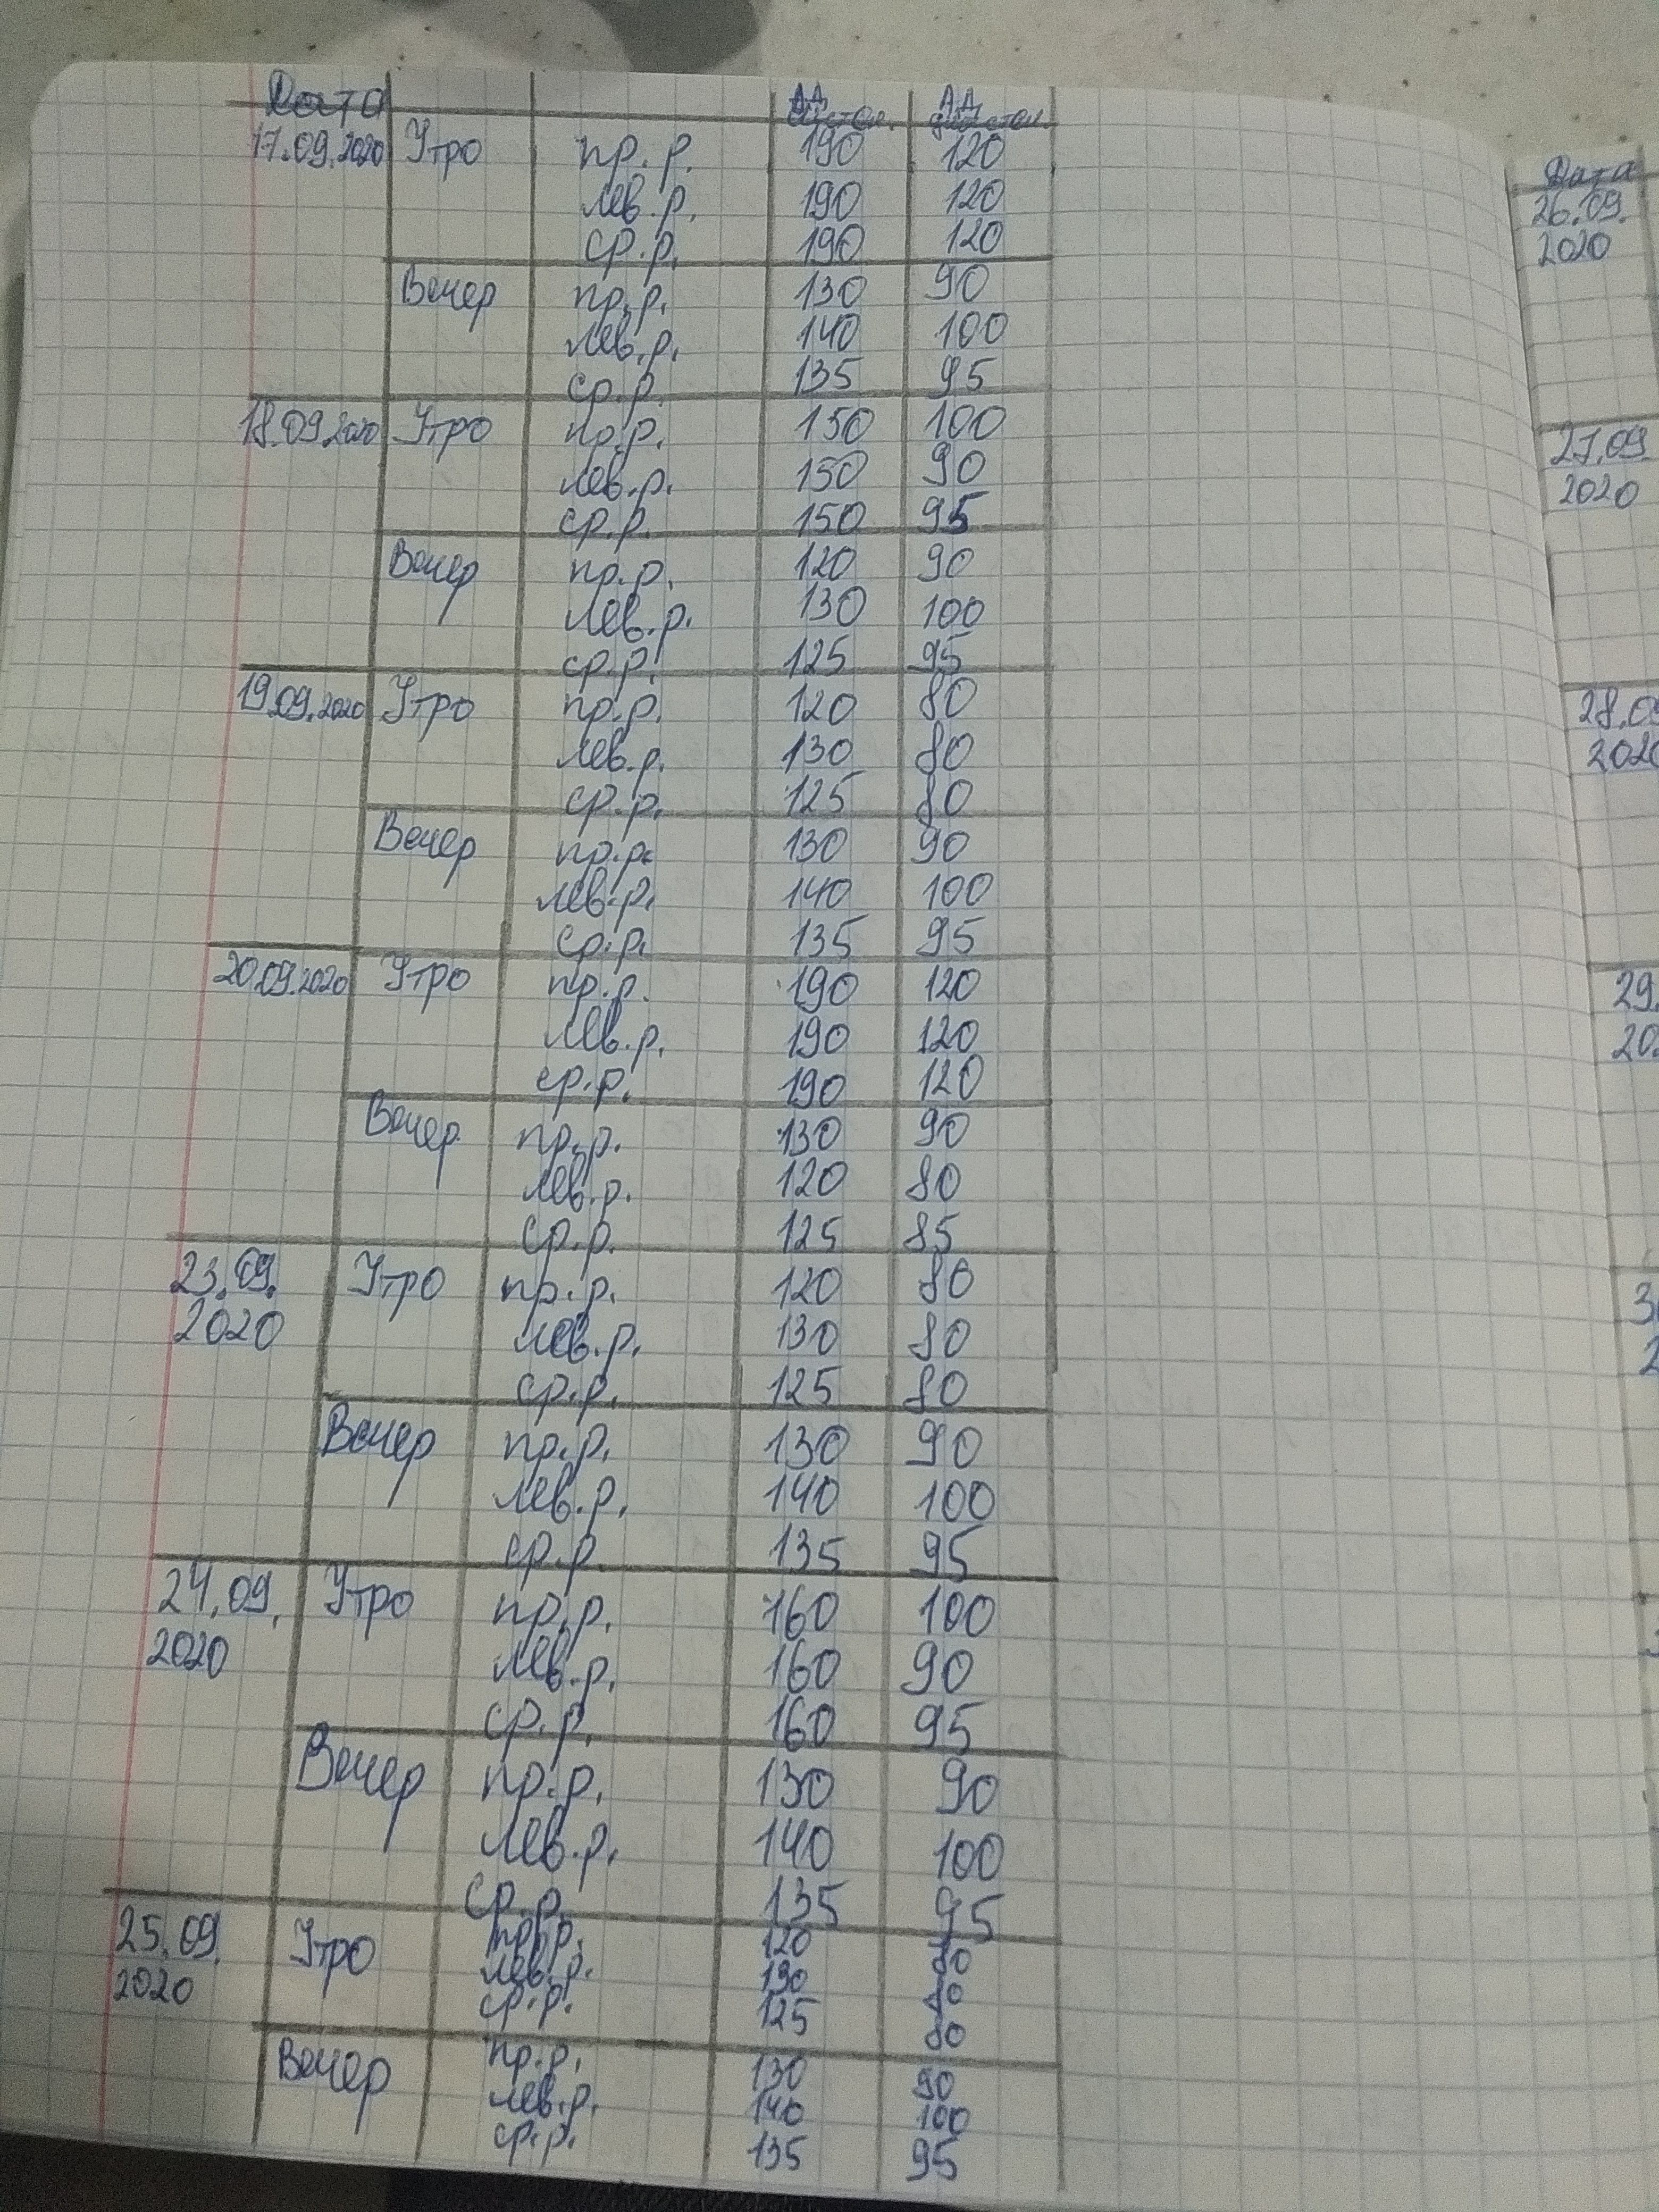 Дата АД систол. АД диастол.
17.09.2020 Утро пр.р. 190 120
лев.р. 190 120
ср.р. 190 120
Вечер пр.р. 130 90
лев.р. 140 100
ср.р. 135 95
18.09.2020 Утро пр.р. 150 100
лев.р. 150 90
ср.р. 150 95
Вечер пр.р. 120 90
лев.р. 130 100
ср.р. 125 95
19.09.2020 Утро пр.р. 120 80
лев.р. 130 80
ср.р. 125 80
Вечер пр.р. 130 90
лев.р. 140 100
ср.р. 135 95
20.09.2020 Утро пр.р. 190 120
лев.р. 190 120
ср.р. 190 120
Вечер пр.р. 130 90
лев.р. 120 80
ср.р. 125 85
23.09. Утро пр.р. 120 80
2020 лев.р. 130 80
ср.р. 125 80
Вечер пр.р. 130 90
лев.р. 140 100
ср.р. 135 95
24.09. Утро пр.р. 160 100
2020 лев.р. 160 90
ср.р. 160 95
Вечер пр.р. 130 90
лев.р. 140 100
ср.р. 135 95
25.09. Утро пр.р. 120 80
2020 лев.р. 130 80
ср.р. 125 80
Вечер пр.р. 130 90
лев.р. 140 100
ср.р. 135 95
Дата
26.09.
2020
27.09
2020
28.09
2020
29.